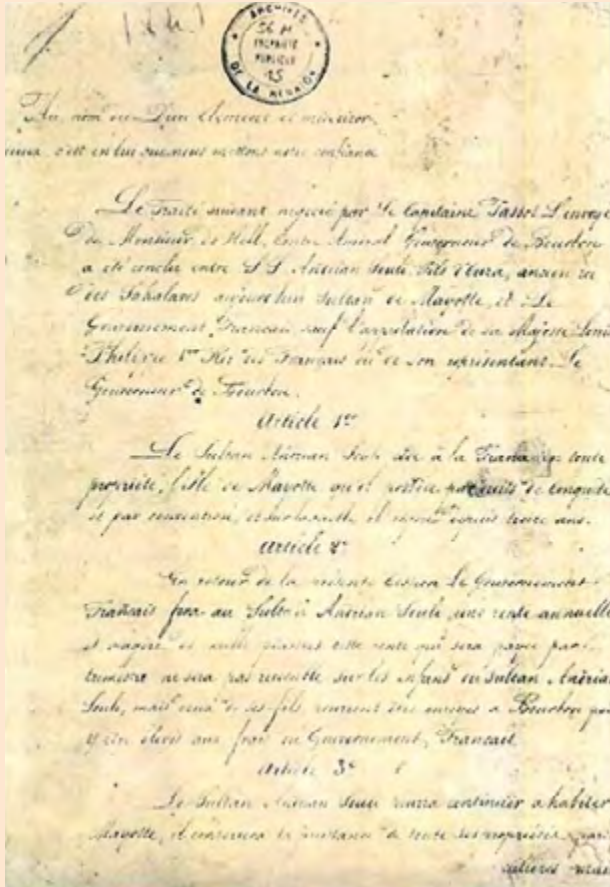 1841
ARCHIVES
56 M
PROPRIÉTÉ
PUBLIQUE
15
DE LA REUNION
Au nom de Dieu clément et miséricor
dieux, c'est en lui que nous mettons notre confiance
Le Traité suivant négocié par Le Capitaine Passot L'envoyé
de Monsieur de Hell, Contre Amiral Gouverneur de Bourbon
a été conclu entre S. S. Andrian Souli, fils d'Oura, ancien roi
des Sakalaves aujourd'hui Sultan de Mayotte, et Le
Gouvernement Français sauf l'approbation de sa Majesté Louis
Philippe 1er Roi des Français ou de son représentant Le
Gouverneur de Bourbon.
Article 1er
Le Sultan Andrian Souli cède à la France en toute
propriété, l'île de Mayotte qu'il possède par droits de conquête
et par convention, et sur laquelle il règne depuis treize ans.
Article 2e
En retour de la présente Cession Le Gouvernement
Français fera au Sultan Andrian Souli, une rente annuelle
et viagère de mille piastres cette rente qui sera payée par
trimestre ne sera pas réversible sur les enfants du sultan Andrian
Souli, mais deux de ses fils pourront être envoyés à Bourbon pour
y être élevés aux frais du Gouvernement, Français
Article 3e
Le Sultan Andrian Souli pourra continuer à habiter
Mayotte, il conservera la jouissance de toute ses propriétés, parti
culières